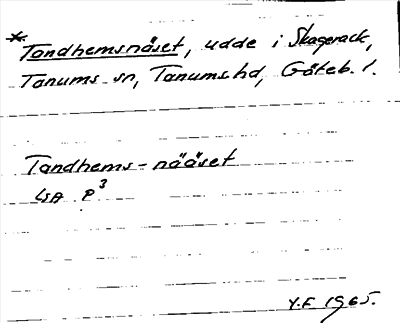 * Tandhemsnäset, udde i Skagerack,
Tanums sn, Tanums hd, Göteb. l.
Tandhems-nääset
LSA P³
Y.F. 1965.